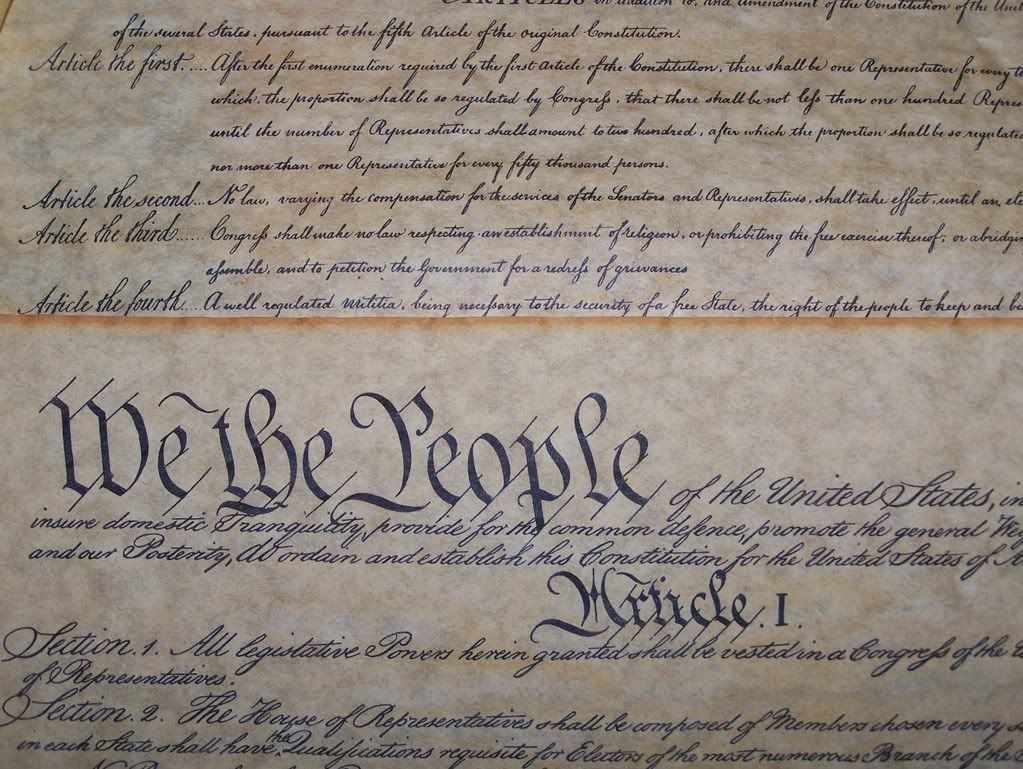 ARTICLES in addition to, and amendment of the Constitution of the
of the several States, pursuant to the fifth Article of the original Constitution.
Article the first..... After the first enumeration required by the first Article of the Constitution, there shall be one Representative for every
which, the proportion shall be so regulated by Congress, that there shall be not less than one hundred
until the number of Representatives shall amount to two hundred, after which the proportion shall be so
nor more than one Representative for every fifty thousand persons.
Article the second... No law, varying the compensation for the services of the Senators and Representatives, shall take effect, until an
Article the third...... Congress shall make no law respecting an establishment of religion, or prohibiting the free exercise thereof; or
assemble, and to petition the Government for a redress of grievances
Article the fourth..... A well regulated militia, being necessary to the security of a free State, the right of the people to keep and
We the People of the United States, in
insure domestic Tranquility, provide for the common defence, promote the general
and our Posterity, do ordain and establish this Constitution for the United States of
Article. I.
Section. 1. All legislative Powers herein granted shall be vested in a Congress of the
of Representatives.
Section. 2. The House of Representatives shall be composed of Members chosen every
in each State shall have the Qualifications requisite for Electors of the most numerous Branch of the